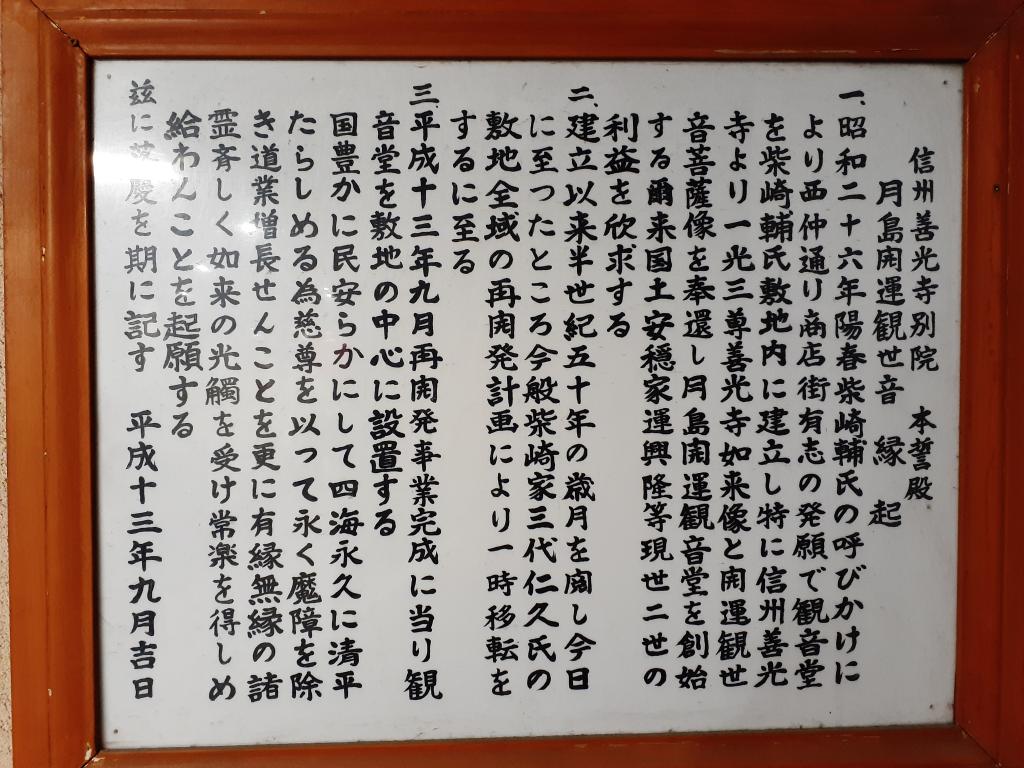 信州善光寺別院　本誓殿
月島開運観世音　縁起
一、昭和二十六年陽春柴崎輔氏の呼びかけに
より西仲通り商店街有志の発願で観音堂
を柴崎輔氏敷地内に建立し特に信州善光
寺より一光三尊善光寺如来像と開運観世
音菩薩像を奉還し月島開運観音堂を創始
する爾来国土安穏家運興隆等現世二世の
利益を欣求する
二、建立以来半世紀五十年の歳月を閲し今日
に至ったところ今般柴崎家三代仁久氏の
敷地全域の再開発計画により一時移転を
するに至る
三、平成十三年九月再開発事業完成に当り観
音堂を敷地の中心に設置する
国豊かに民安らかにして四海永久に清平
たらしめる為慈尊を以って永く魔障を除
き道業増長せんことを更に有縁無縁の諸
霊斉しく如来の光觸を受け常楽を得しめ
給わんことを起願する
玆に落慶を期に記す　平成十三年九月吉日